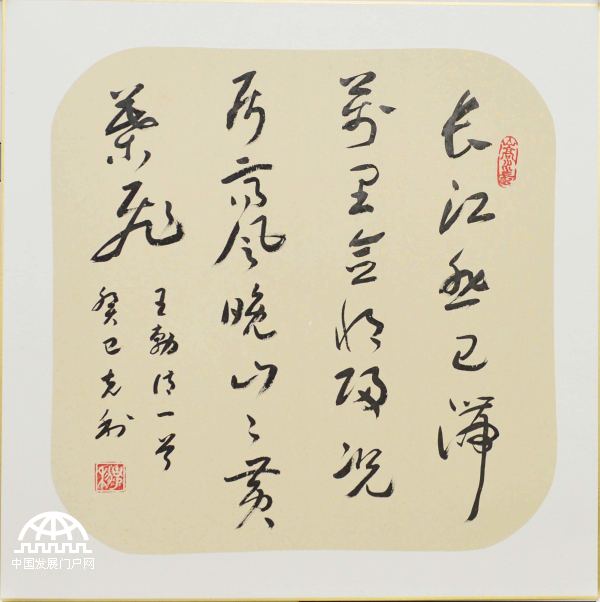 长江悲已滞
萬里念将归况
属高风晚山々黄
葉飛
王勃诗一首
癸巳克利
中国发展门户网